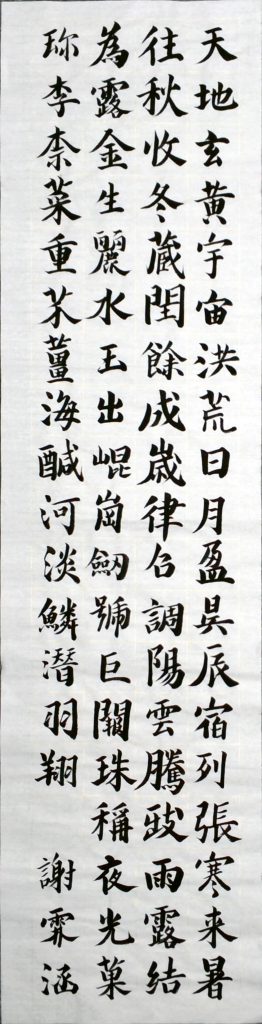 天地玄黃宇宙洪荒日月盈昃辰宿列張寒来暑
往秋收冬藏閏餘成歲律召調陽雲騰致雨露結
為露金生麗水玉出崐崗劒號巨闕珠稱夜光菓
珎李柰菜重芥薑海醎河淡鱗潛羽翔 謝霏涵